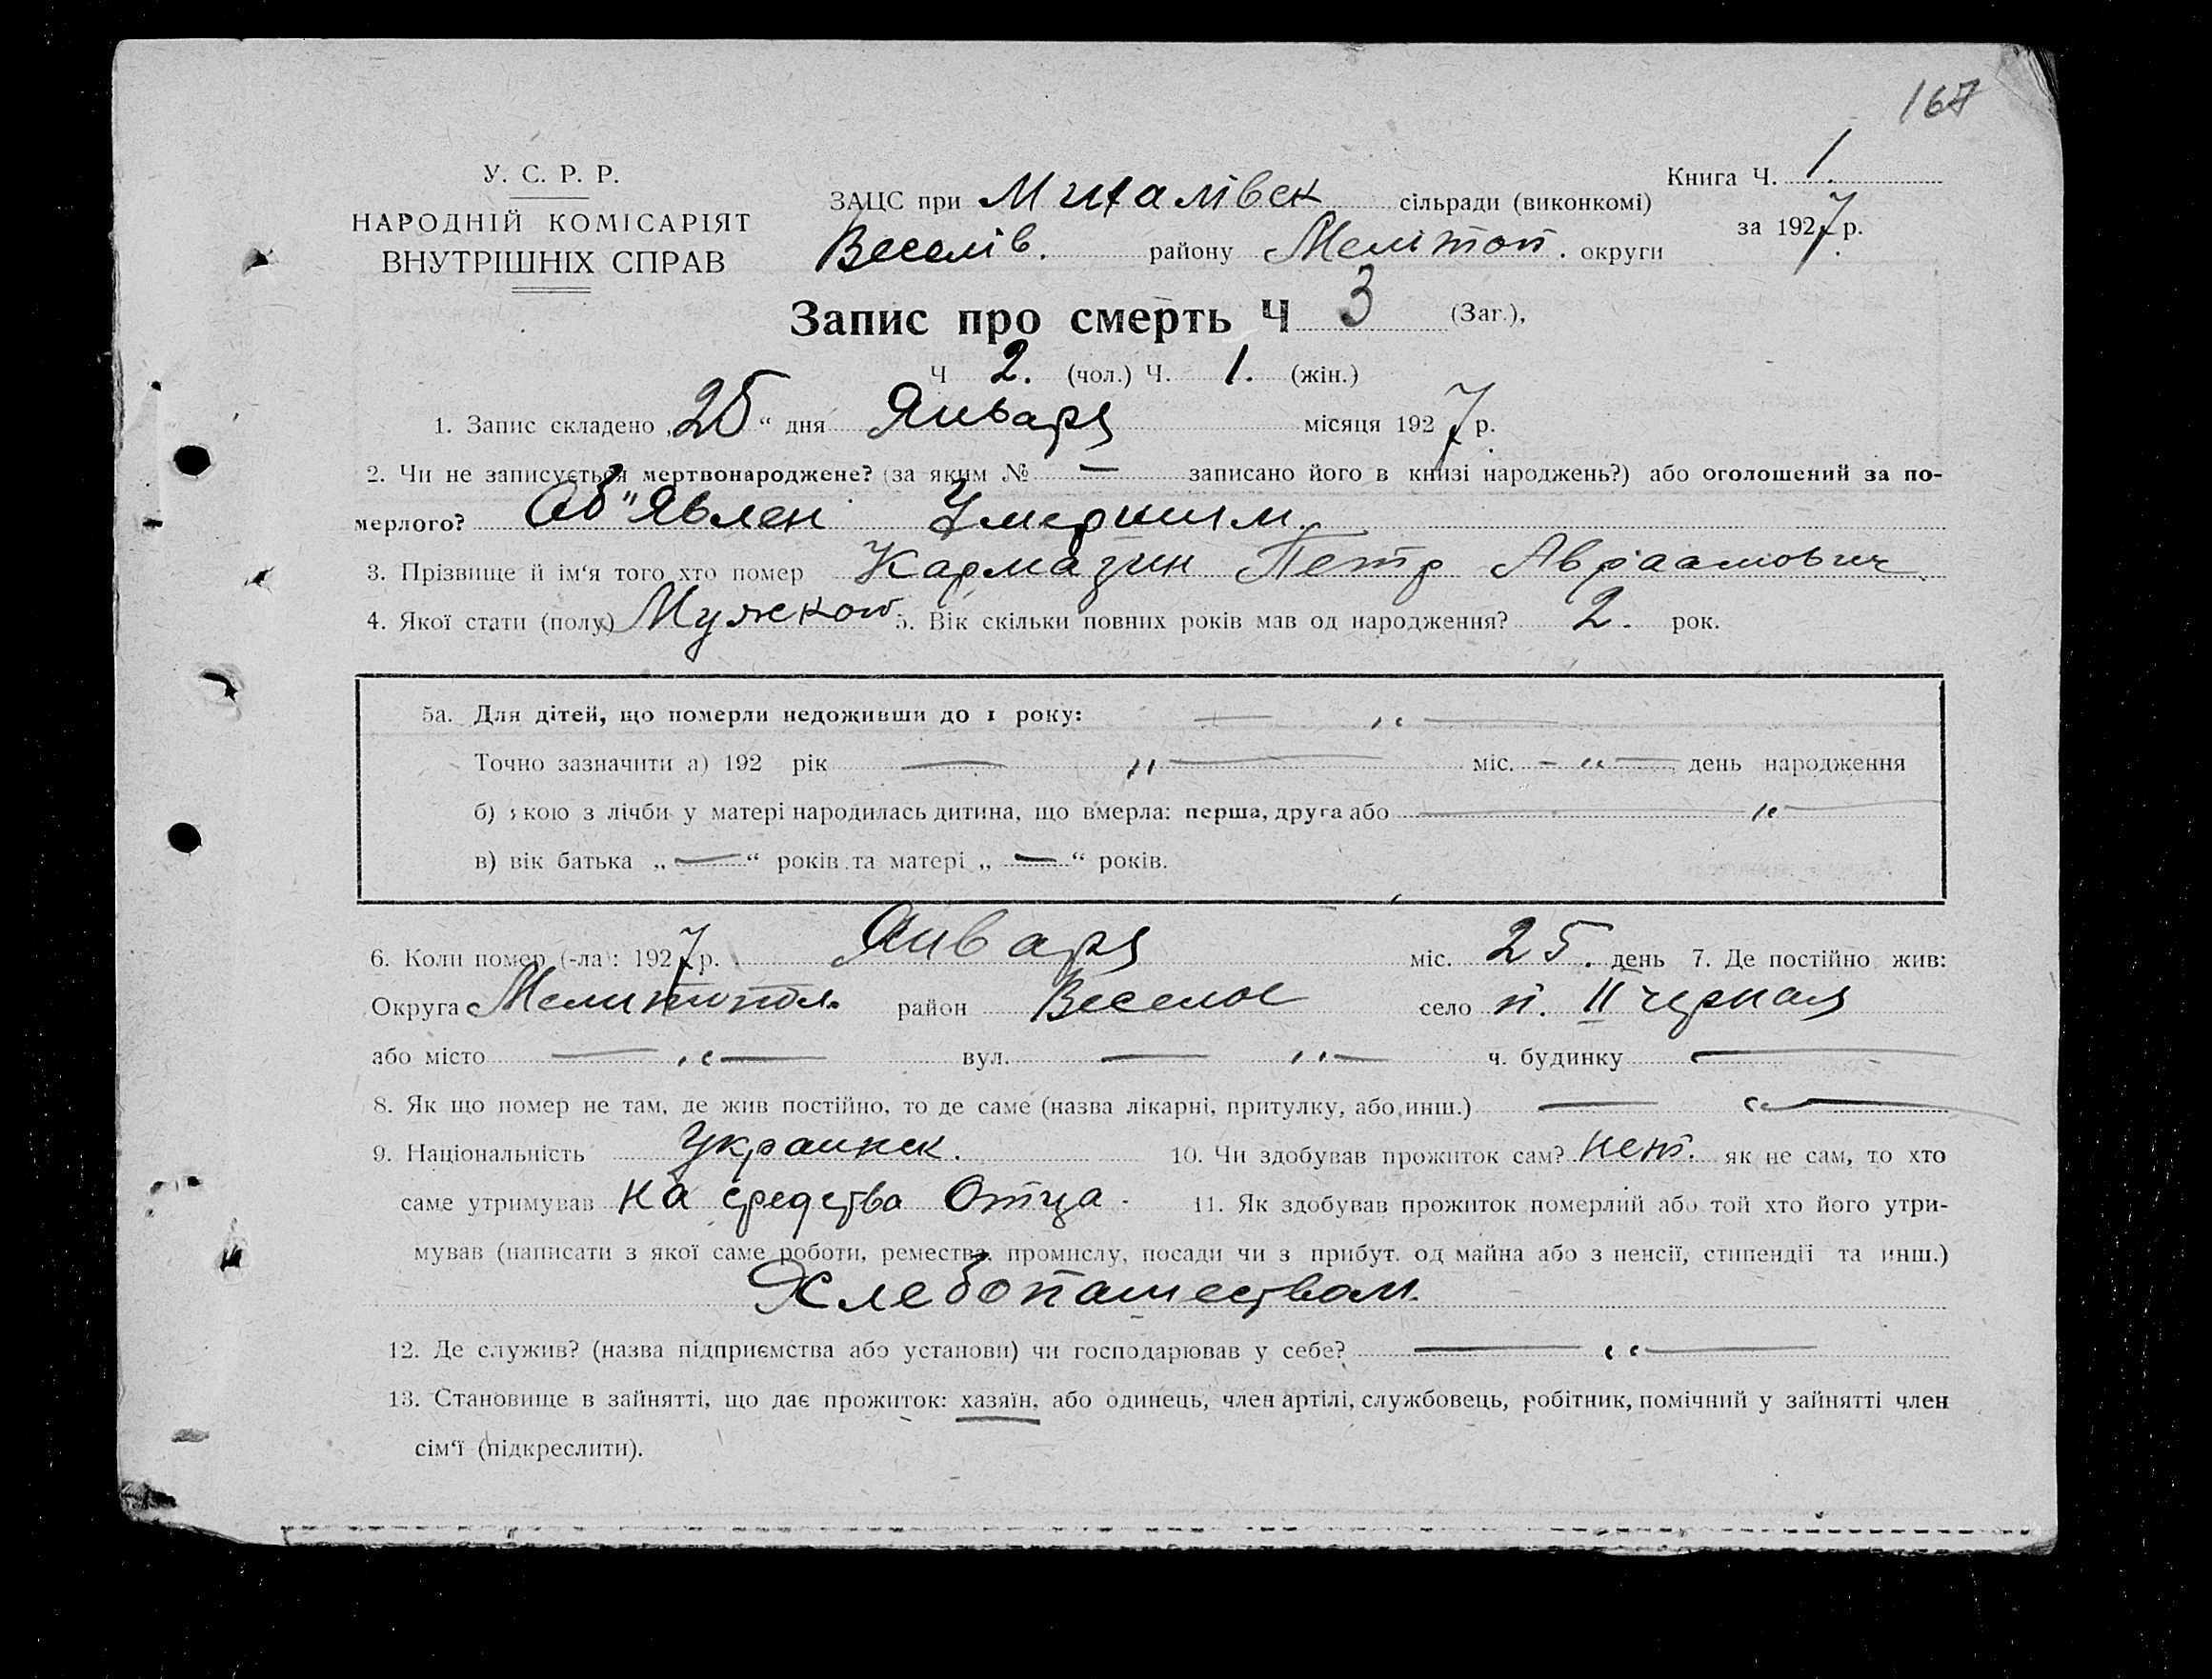 167
У. С. Р. Р.
НАРОДНІЙ КОМІСАРІЯТ
ВНУТРІШНІХ СПРАВ
Книга Ч. 1.
за 1927 р.
ЗАЦС при Михалівск сільради (виконкомі)
Веселів. району Мелітоп. округи
Запис про смерть Ч 3 (Заг.),
Ч 2. (чол.) Ч. 1. (жін.)
1. Запис складено „25“ дня Января місяця 1927 р.
2. Чи не записується мертвонароджене? (за яким № — записано його в книзі народжень?) або оголошений за по-
мерлого? Об"явлен Умершим.
3. Прізвище й ім‘я того хто помер Кармазин Петр Авраамович
4. Якої стати (полу) Мужской 5. Вік скільки повних років мав од народження? 2. рок.
5а. Для дітей, що померли недоживши до 1 року: — „ —
Точно зазначити а) 192 рік — „ — міс. — „ — день народження
б) якою з лічби у матері народилась дитина, що вмерла: перша, друга або — „ —
в) вік батька „—“ років та матері „—“ років.
6. Коли помер (-ла): 1927 р. Января міс. 25. день 7. Де постійно жив:
Округа Мелитопол. район Веселое село п. II Чурная
або місто — „ — вул. — „ — ч. будинку —
8. Як що помер не там, де жив постійно, то де саме (назва лікарні, притулку, або инш.) — „ —
9. Національність Украинск. 10. Чи здобував прожиток сам? нет. як не сам, то хто
саме утримував на средства Отца - 11. Як здобував прожиток померлий або той хто його утри-
мував (написати з якої саме роботи, ремества, промислу, посади чи з прибут. од майна або з пенсії, стипендії та инш.)
Хлебопашеством.
12. Де служив? (назва підприємства або установи) чи господарював у себе? — „ —
13. Становище в зайнятті, що дає прожиток: хазяїн, або одинець, член артілі, службовець, робітник, помічний у зайнятті член
сім‘ї (підкреслити).